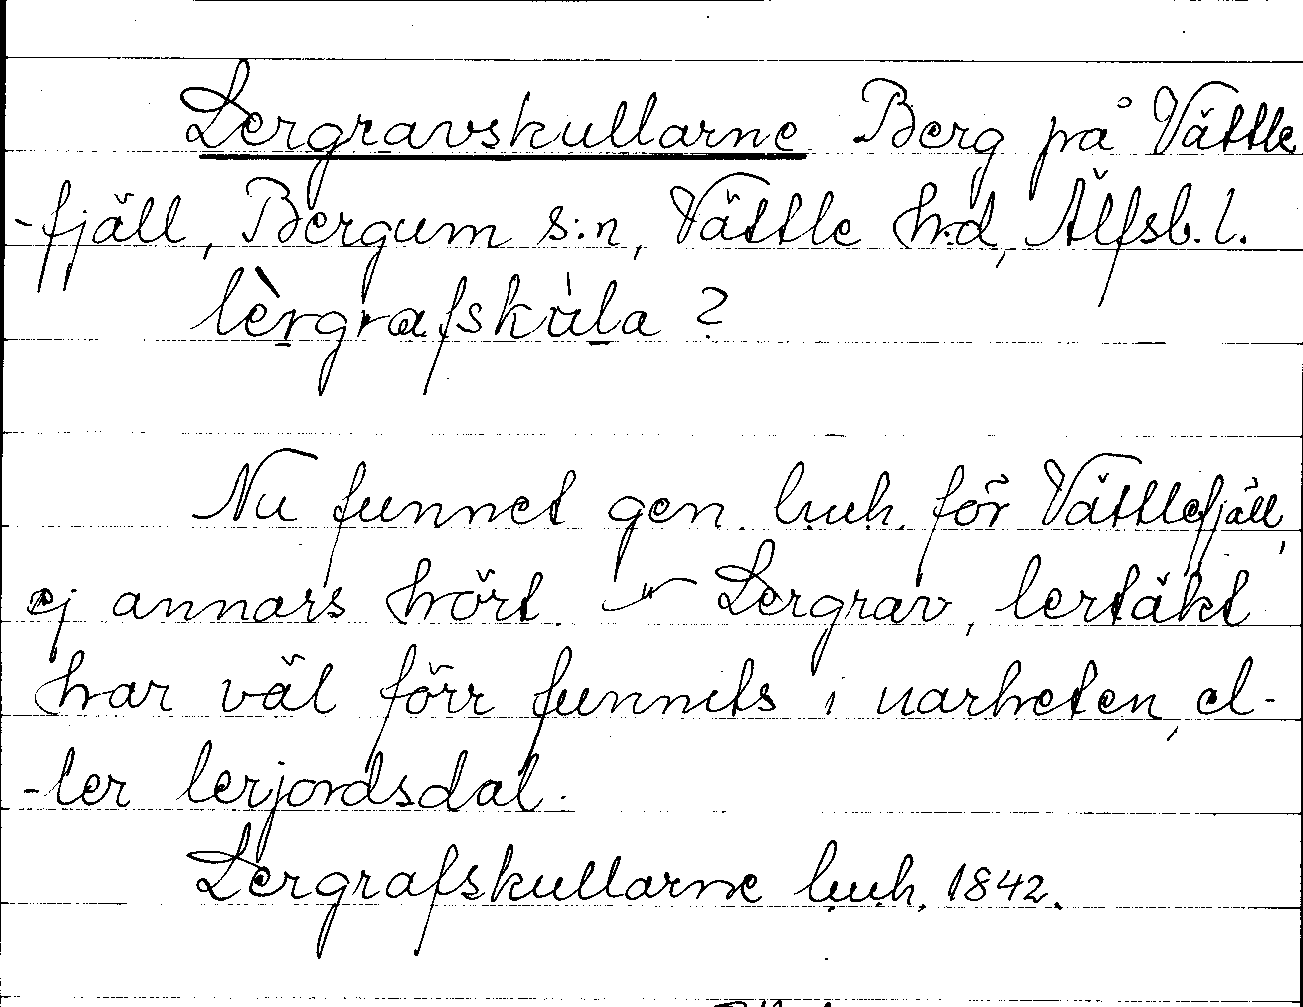 Lergravskullarne Berg på Vättle
-fjäll, Bergum s:n, Vättle h:d, Älfsb. l.
lèrgrafskùla ?
Nu funnet gen. l.u.h. för Vättlefjäll,
ej annars hört. Lergrav, lertäkt
har väl förr funnits i narheten, el-
-ler lerjordsdal.
Lergrafskullarne l.u.h. 1842.